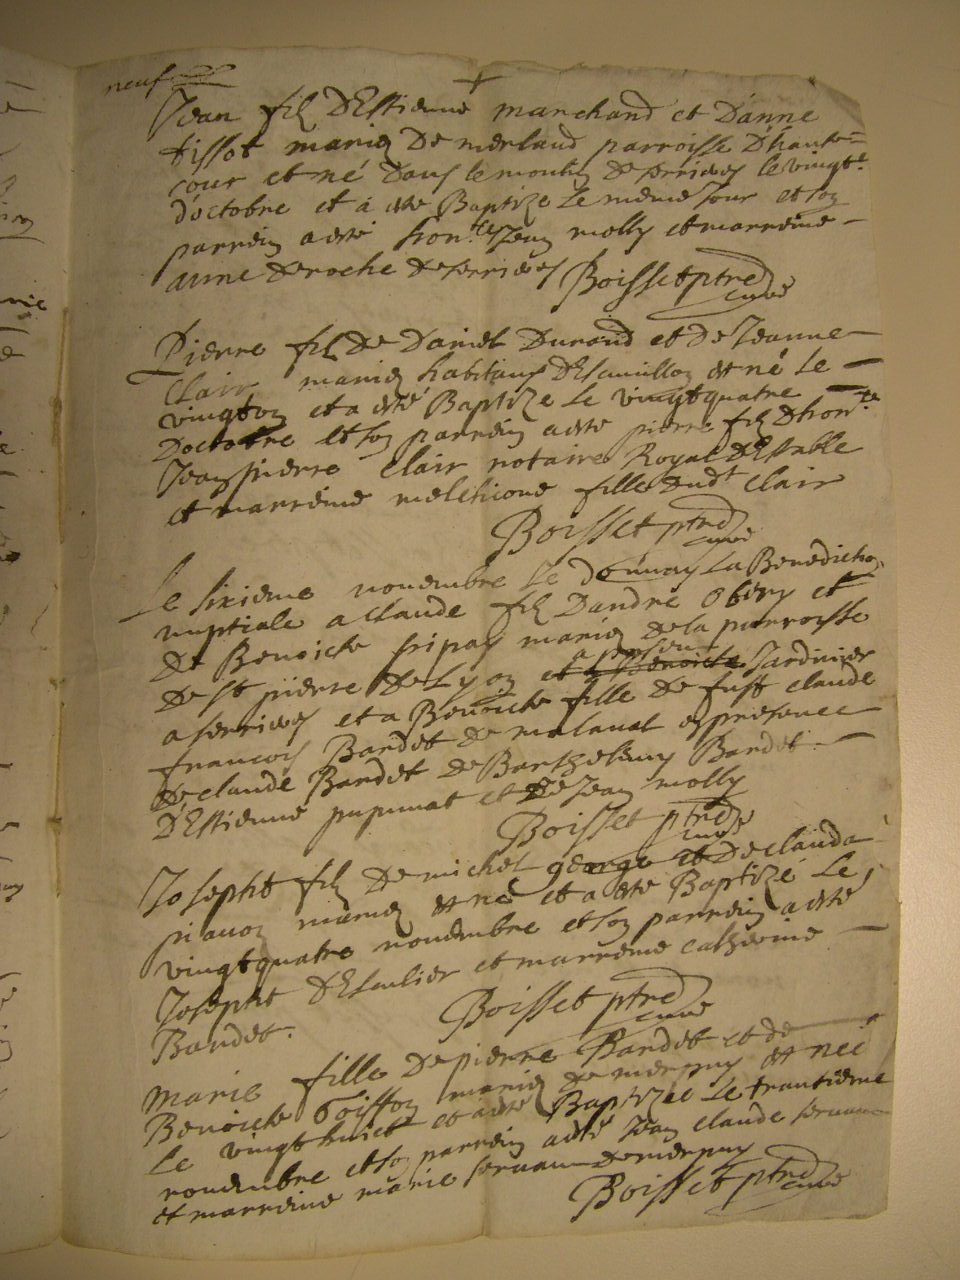 neuf
Jean fils D'Estienne marchand et D'anne
tissot mariez De merland parroisse D'haute=
cour et né Dans le moulin De serrieres le vingt.e
d'octobre et a esté Baptize Le meme Jour et son
parrein a esté hon.ble Jean molly et marreine
anne Deroche De serrieres Boisset ptre
curé
Pierre fils De Daniel Durand et De Jeanne
Clair mariez habitans D' est né Le
vingt et a esté Baptize Le vingtquatre
D'octobre et son parrein a esté pierre fils D'hon.ble
Jean pierre Clair notaire Royal
et marreine fille Dud.t Clair
Boisset ptre
curé
Le sixieme novembre Je donnay La Benediction
nuptiale a Claude fils D'andre et
De Benoicte mariez De la parroisse
De St pierre De Lyon a present Jardinier
a serrieres et a Benoicte fille De fust Claude
francois Bardet De malaval en presence
De claude Bardet De Barthelemy Bardet
D'Estienne et De Jean molly
Boisset ptre
curé
Josepht fils De michel george et De clauda
mariez est né et a esté Baptizé Le
vingtquatre novembre et son parrein a esté
Josepht et marreine catherine
Bardet. Boisset ptre
curé
Marie fille De pierre Bardet et de
Benoicte mariez De merpuy est née
Le vingt huict et a esté Baptizée Le trantieme
novembre et son parrein a esté Jean claude servan
et marreine marie servan De merpuy
Boisset ptre
curé